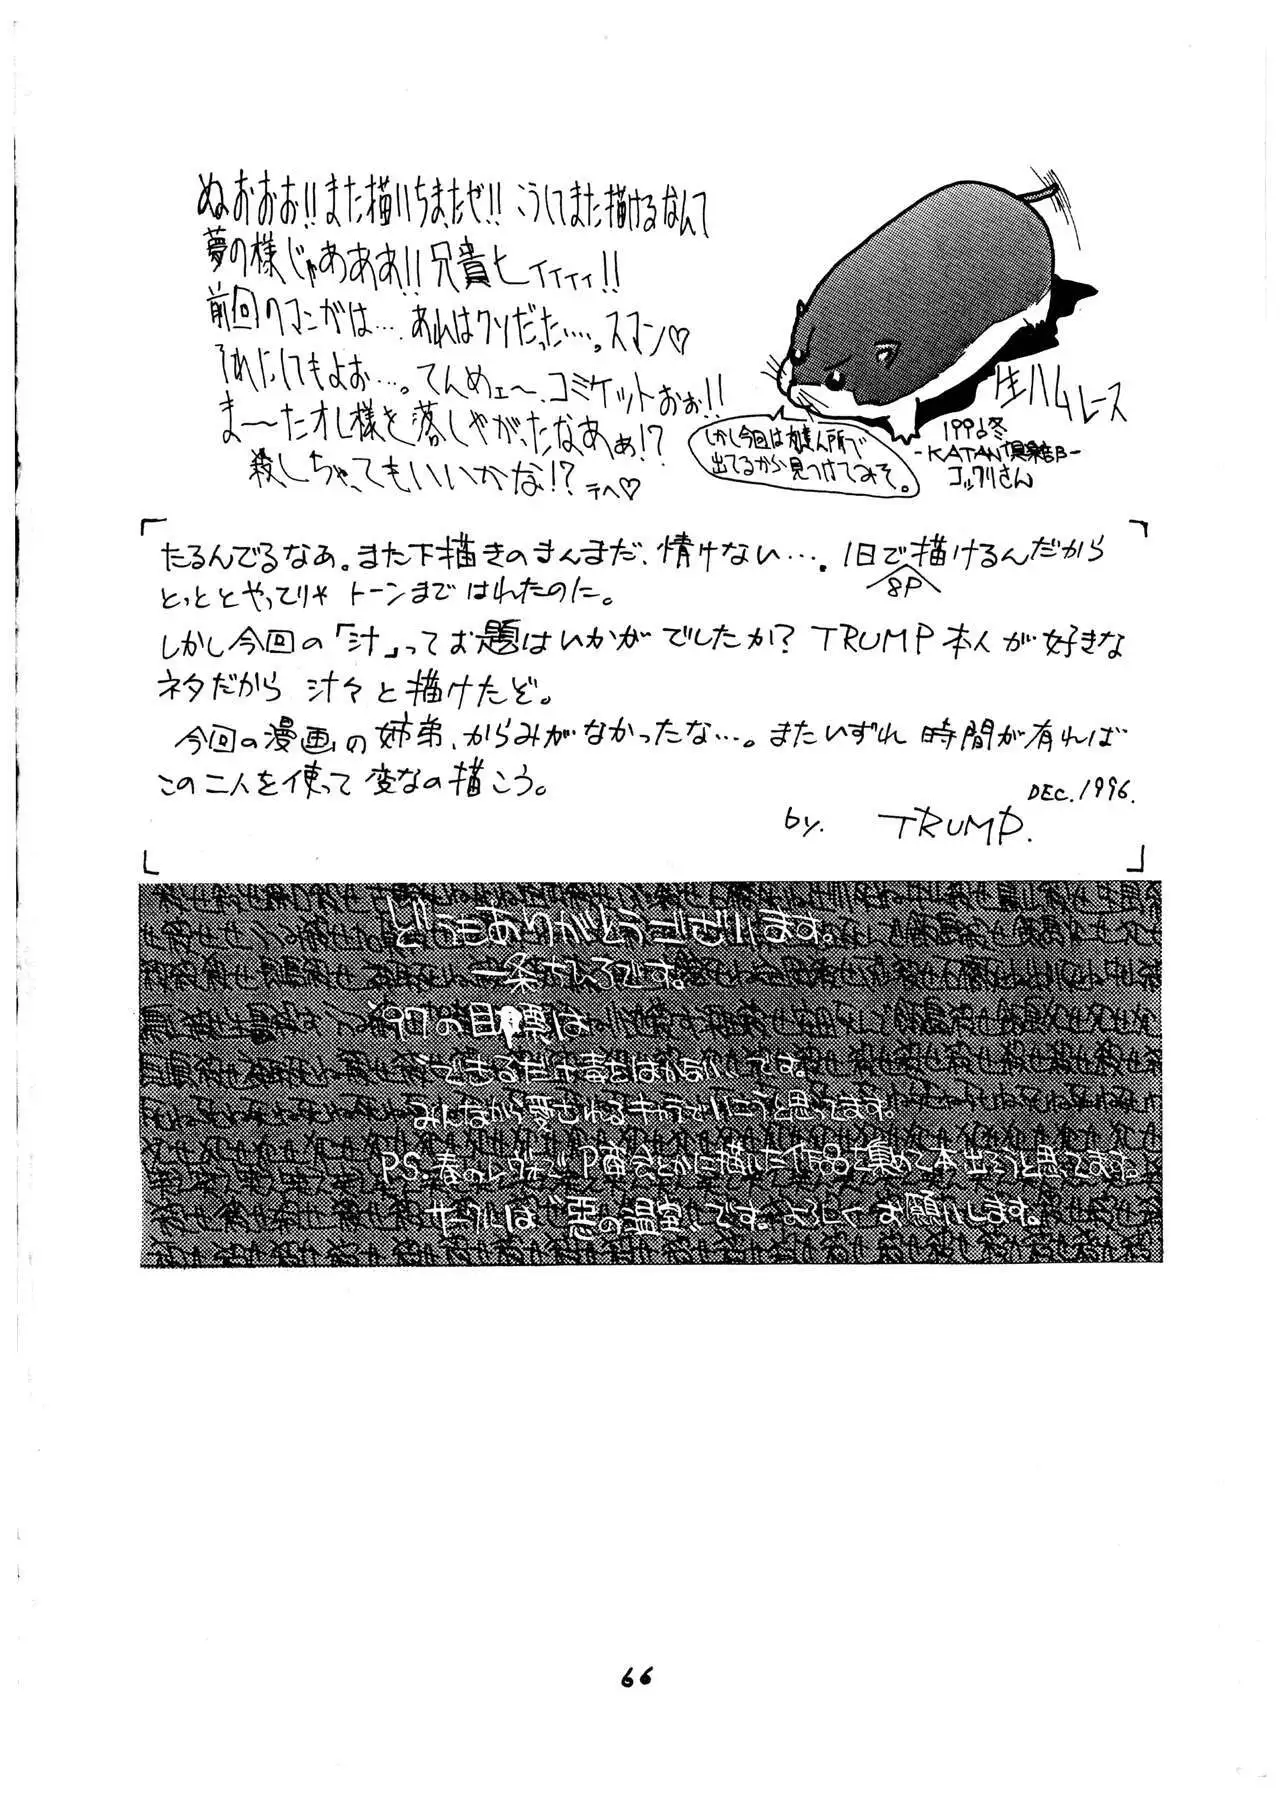 ぬおおお!!また描いちまたぜ!!こうしてまた描けるなんて
夢の様じゃあああ!!兄貴ヒィィィィ!!
前回のマンガは…あれはクソだった…。スマン♡
それにしてもよお…。てんめェ〜、コミケットおぉ!!
ま〜たオレ様を落しやがったなあぁ!?
殺しちゃってもいいかな!?テヘ♡
しかし今回は
所で
出てるから見つけてみそ。
生ハムレース
1996冬
-KATAN倶楽部-
コックリさん
たるんでるなあ。また下描きのまんまだ、情けない…。1日で描けるんだから
8P
とっととやってりゃトーンまではれたのに。
しかし今回の「汁」ってお題はいかがでしたか?TRUMP本人が好きな
ネタだから汁々と描けたぞ。
今回の漫画の姉弟、からみがなかったな…。またいずれ時間が有れば
この二人を使って変なの描こう。
DEC.1996.
by. TRUMP.
どうもありがとうございます。
一条さひろです。
97の目標は
できるだけ毒をはかないです。
みんなから愛されるキャラでいこうと思ってます。
PS.春のレヴォでP
とかに描いた作品集めて本出そうと思ってます。
サークルは「悪の温室」です。よろしくお願いします。
66